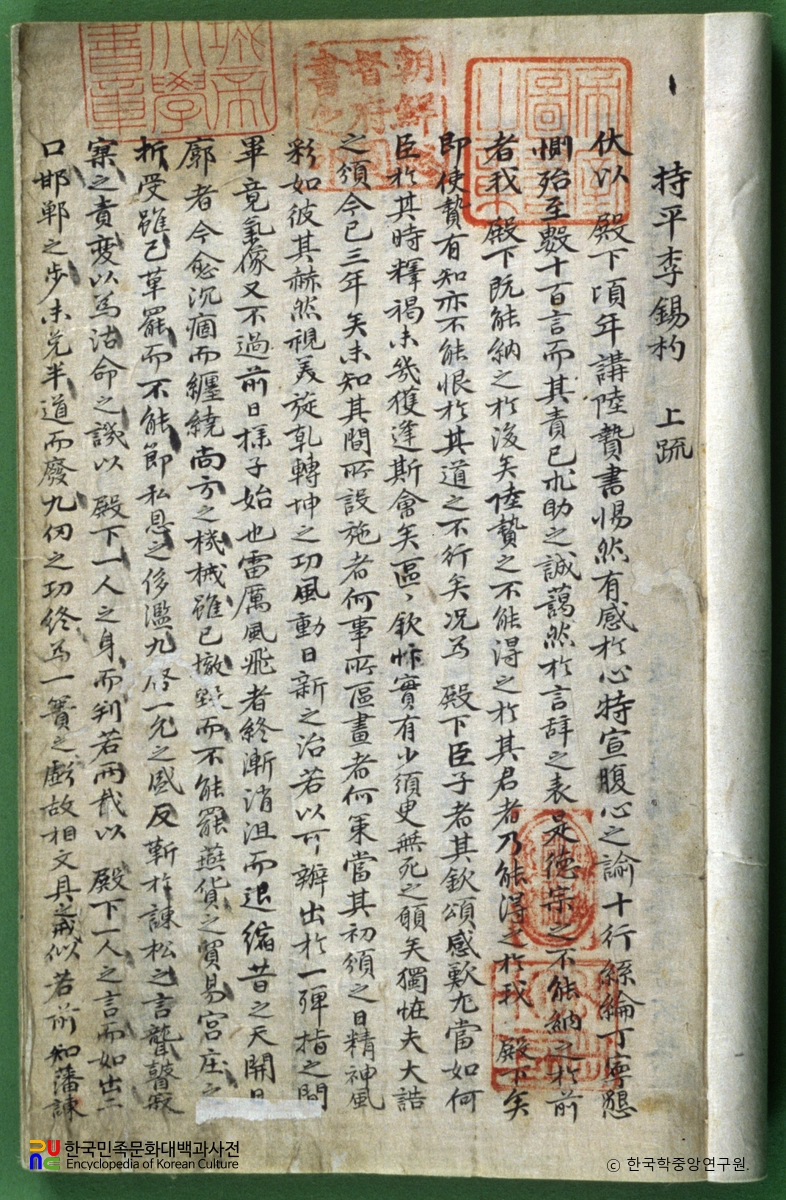 持平李錫杓 上疏
伏以 殿下頃年講陸贄書惕然有感於心特宣腹心之諭十行絲綸丁寧懇
惻殆至數十百言而其責己求助之誠藹然於言辞之表是德宗之不能納之於前
者我 殿下旣能納之於後矣陸贄之不能得之於其君者乃能得之於我 殿下矣
即使贄有知亦不能恨於其道之不行矣况為 殿下臣子者其欽頌感歎尤當如何
臣於其時釋褐未幾獲逢斯會矣區々欽忭實有少須臾無死之願矣獨恠夫大誥
之頒今已三年矣未知其間所設施者何事所區畫者何策當其初頒之日精神風
彩如彼其赫然視美旋乹轉坤之功風動日新之治若以可辦出於一彈指之間
畢竟氣像又不過前日㨾子始也雷厲風飛者終漸消沮而退縮昔之天開日
廓者今愈沉痼而纏繞尚方之機械雖已撤毀而不能罷燕貨之貿易宮庄之
折受雖已革罷而不能節私恩之侈濫九 一允之盛反靳於諫松之言聾瞽寂
寞之責変以為沽命之譏以 殿下一人之身而判若兩截以 殿下一人之言而如出二
口邯鄲之步未免半道而廢九仞之功終為一簣之虧故相文具之戒似若前知藩諫
朝鮮總督府圖書之印
帝室圖書之章
한국민족문화대백과사전
Encyclopedia of Korean Culture
© 한국학중앙연구원.